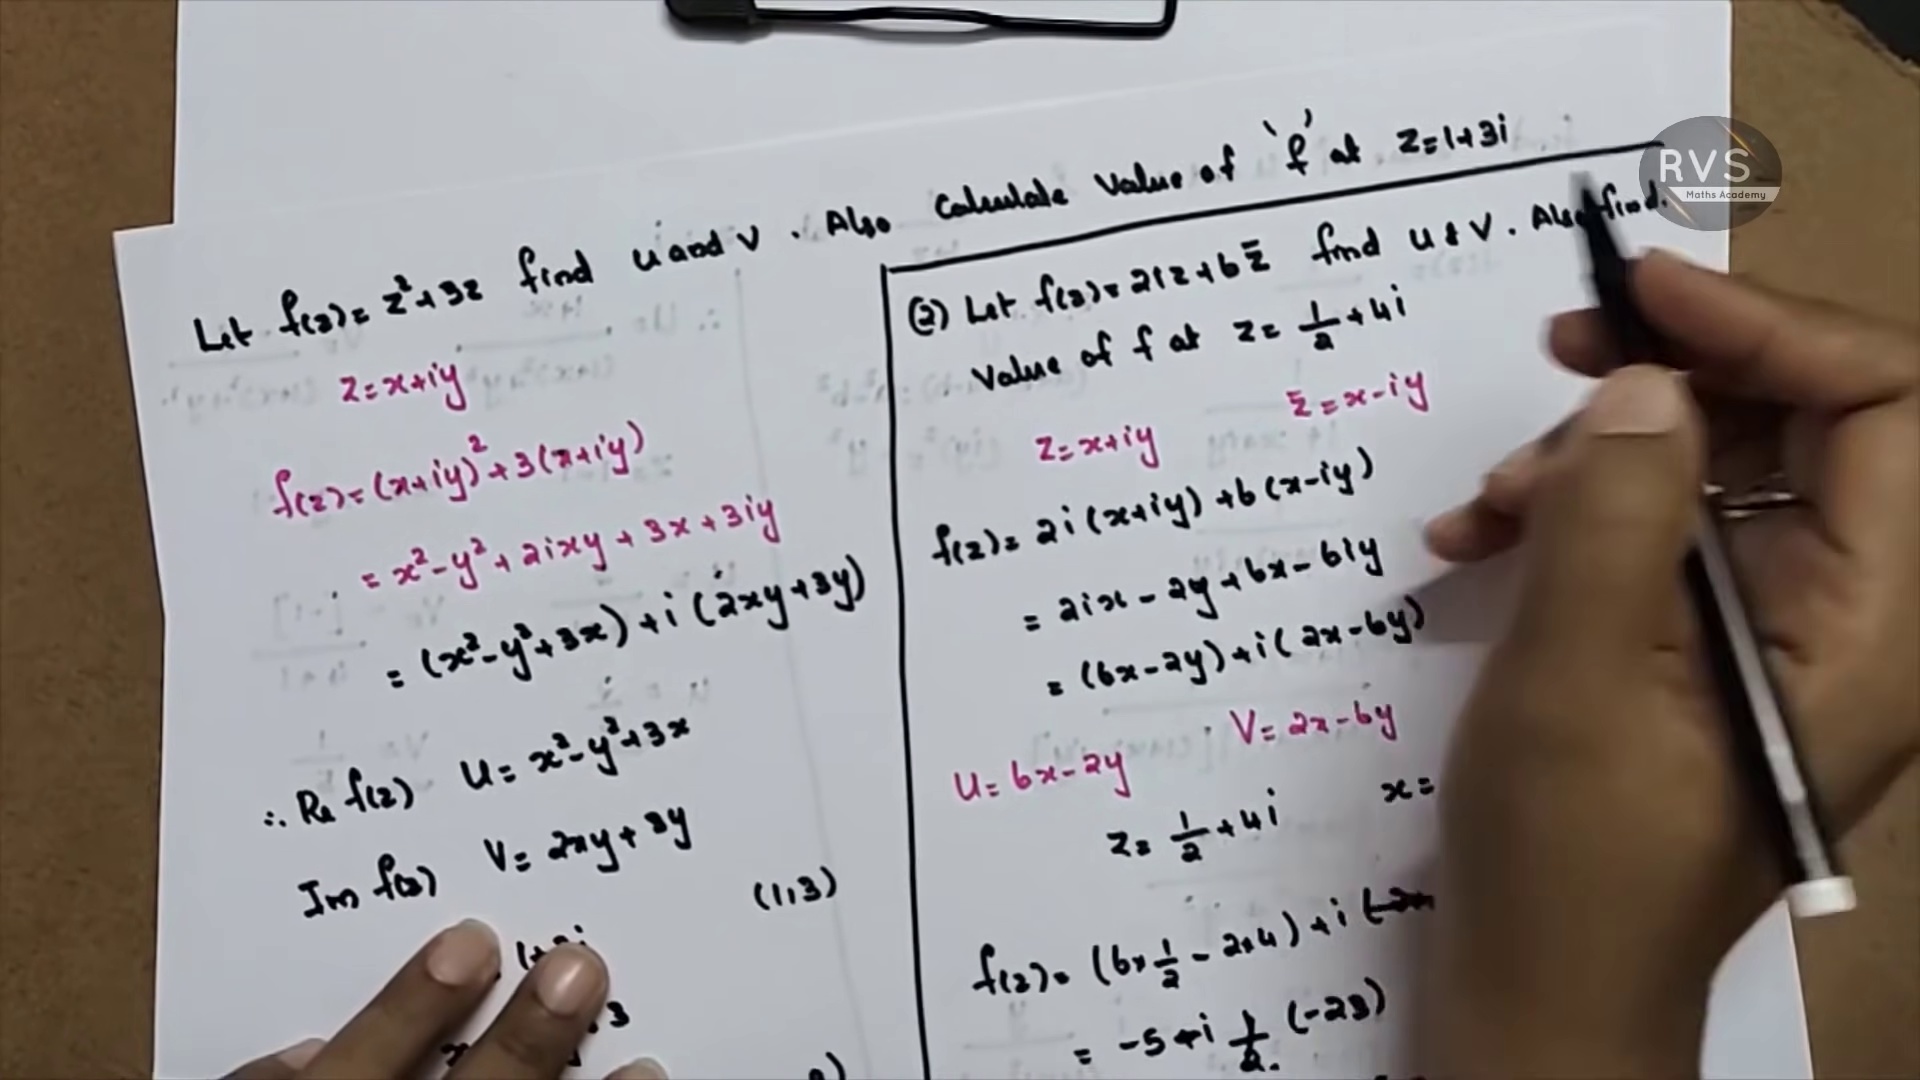 Let f(z) = z² + 3z find u and v . Also Calculate Value of 'f' at z = 1+3i
z = x+iy
f(z) = (x+iy)² + 3(x+iy)
= x² - y² + 2ixy + 3x + 3iy
= (x² - y² + 3x) + i (2xy + 3y)
∴ Re f(z) u = x² - y² + 3x
Im f(z) v = 2xy + 3y
(1,3)
(2) Let f(z) = 2iz + 6z̄ find u & v . Also find.
Value of f at z = 1/2 + 4i
z = x+iy z̄ = x-iy
f(z) = 2i (x+iy) + 6 (x-iy)
= 2ix - 2y + 6x - 6iy
= (6x - 2y) + i ( 2x - 6y)
u = 6x - 2y v = 2x - 6y
z = 1/2 + 4i x =
f(z) = (6 x 1/2 - 2x4) + i
= -5 + i (-23)
RVS
Maths Academy